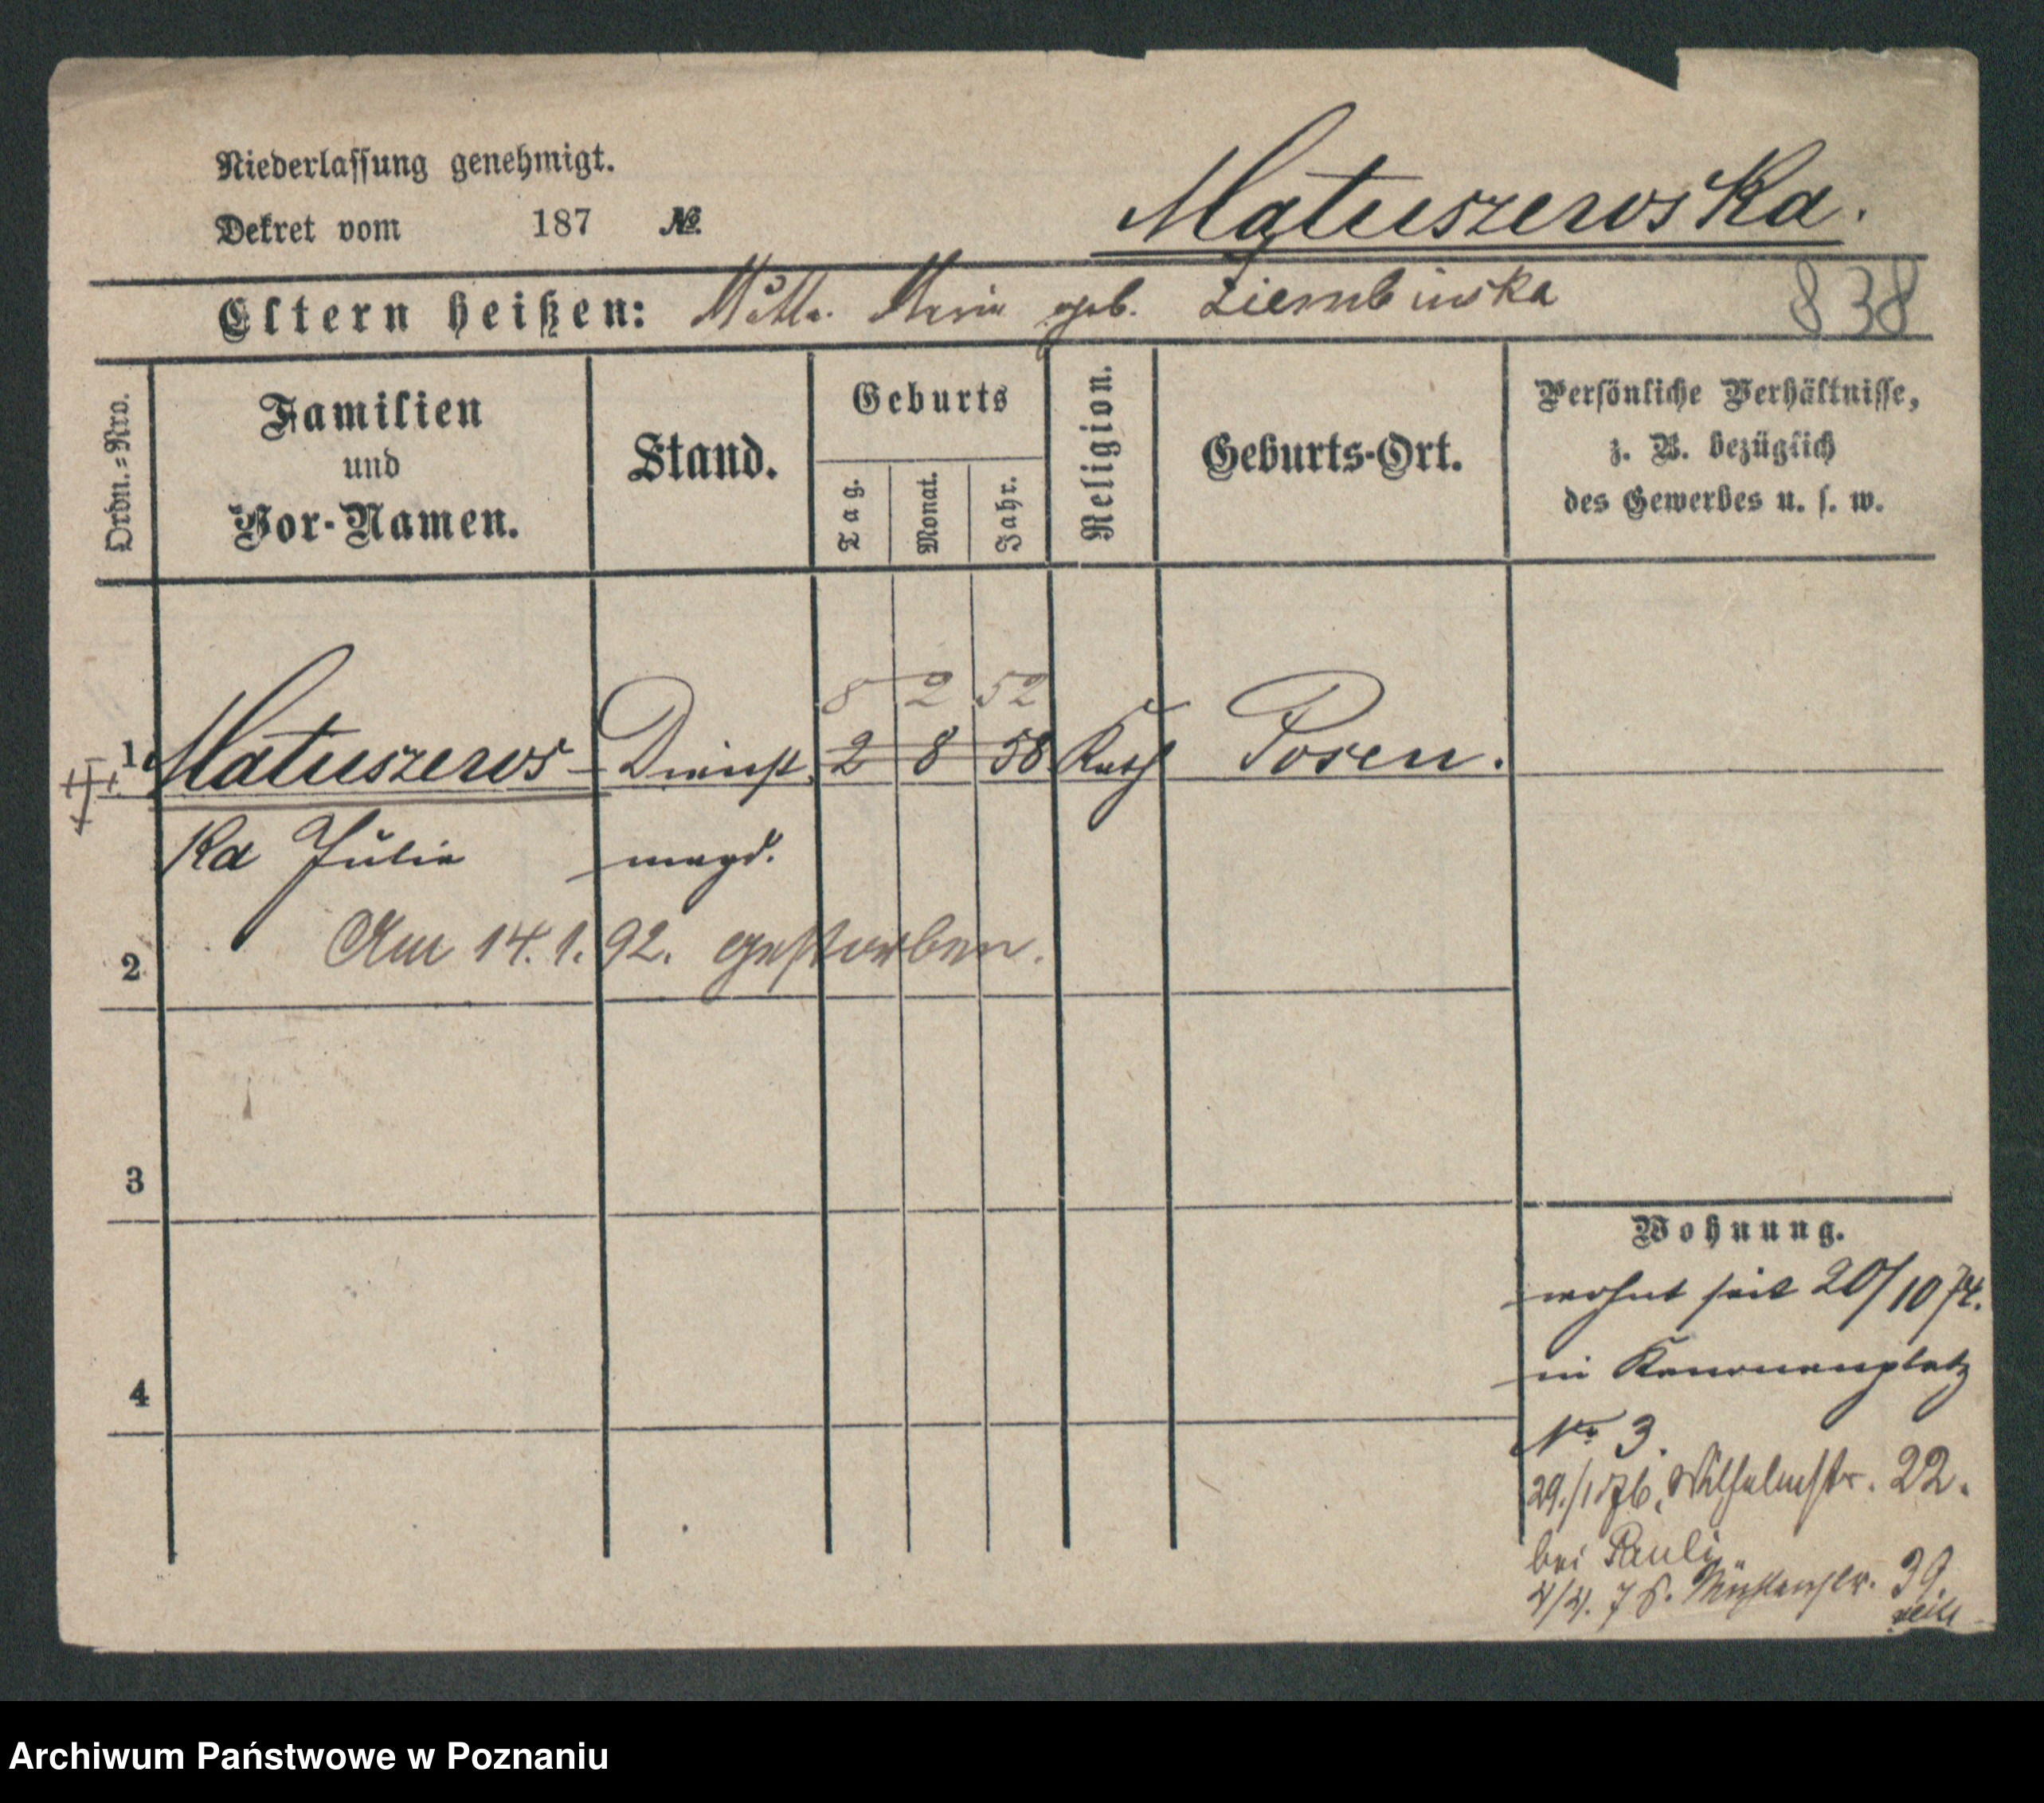 Niederlassung genehmigt.
Dekret vom 187 №
Matuszewska.
Eltern heißen: Maria geb. Ziembinska
838
Ordn.=Nro.
Familien
und
Vor-Namen.
Stand.
Geburts
Tag.
Monat.
Jahr.
Religion.
Geburts-Ort.
Persönliche Verhältnisse,
z. B. bezüglich
des Gewerbes u. s. w.
8 2 52
1 Matuszews- Dienst 2 8 58 Kath Posen.
ka Julia magd.
Am 14.1.92. gestorben.
2
3
4
Wohnung.
wohnt seit 20/10 74.
in Kanonenplatz
No 3.
29./1 76. Wilhelmstr. 22.
bei Pauli
39.
Archiwum Państwowe w Poznaniu